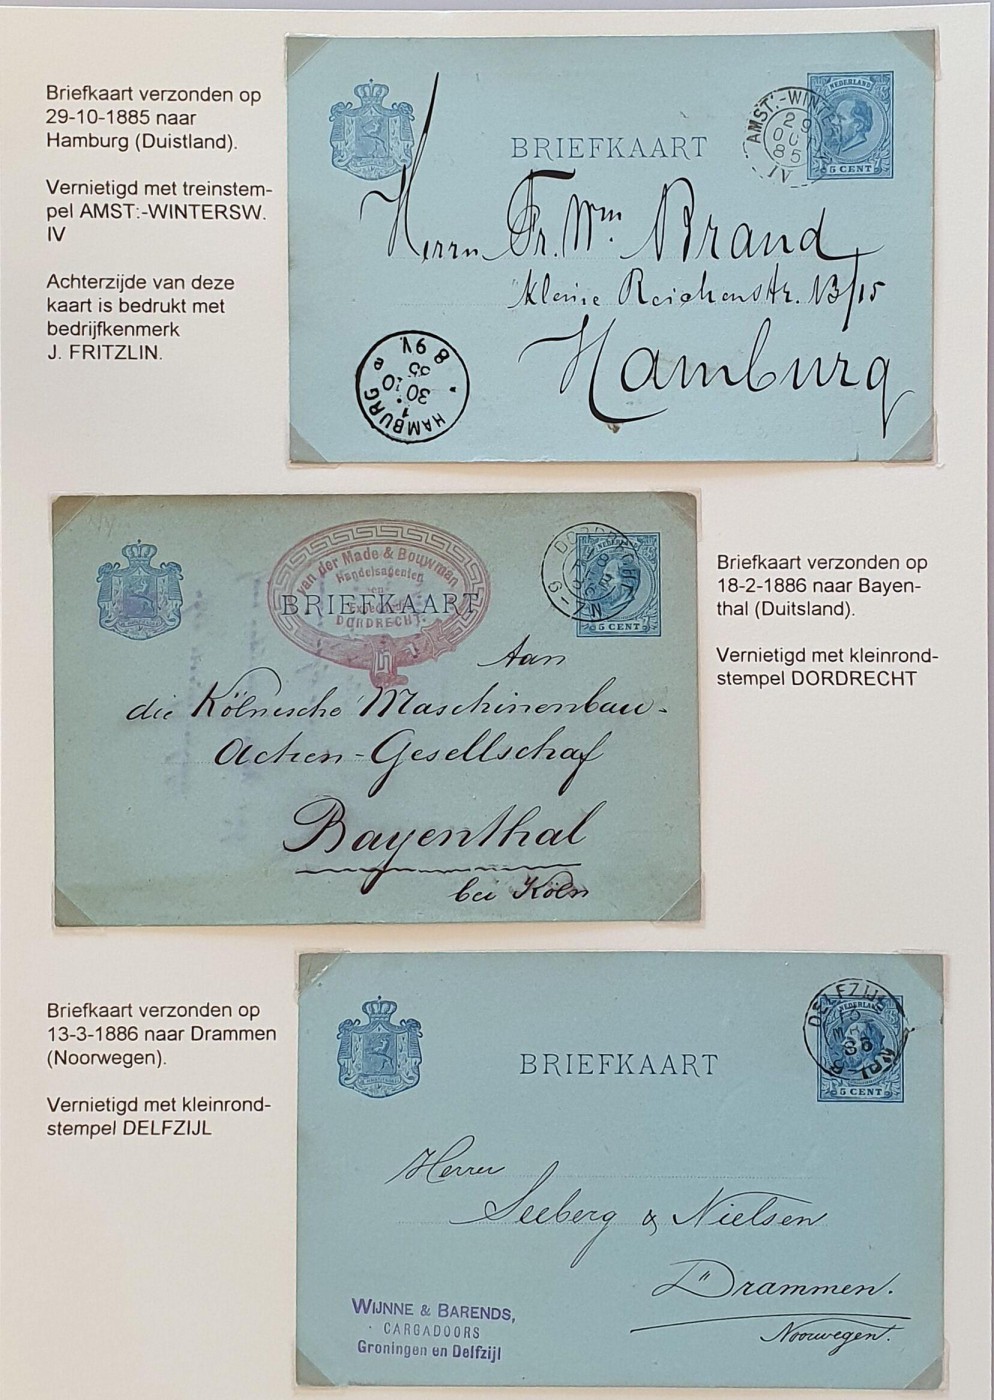 Briefkaart verzonden op
29-10-1885 naar
Hamburg (Duistland).
Vernietigd met treinstem-
pel AMST:-WINTERSW.
IV
Achterzijde van deze
kaart is bedrukt met
bedrijfkenmerk
J. FRITZLIN.
BRIEFKAART
NEDERLAND
5 CENT
AMST:-WINTE
29
OC
85
IV
Herrn Fr. Wm. Brand
Kleine Reichenstr. 13/15
Hamburg
HAMBURG
1
30.10
85
8-9V.
Briefkaart verzonden op
18-2-1886 naar Bayen-
thal (Duitsland).
Vernietigd met kleinrond-
stempel DORDRECHT
van der Made & Bouwman
Handelsagenten
DORDRECHT.
BRIEFKAART
DORDRECHT
5 CENT
Aan
die Kölnische Maschinenbau-
Actien-Gesellschaf
Bayenthal
bei Köln
Briefkaart verzonden op
13-3-1886 naar Drammen
(Noorwegen).
Vernietigd met kleinrond-
stempel DELFZIJL
BRIEFKAART
DELFZIJL
NEDERLAND
86
5 CENT
Herrer
Seeberg & Nielsen
Drammen.
Noorwegen.
WIJNNE & BARENDS,
CARGADOORS
Groningen en Delfzijl